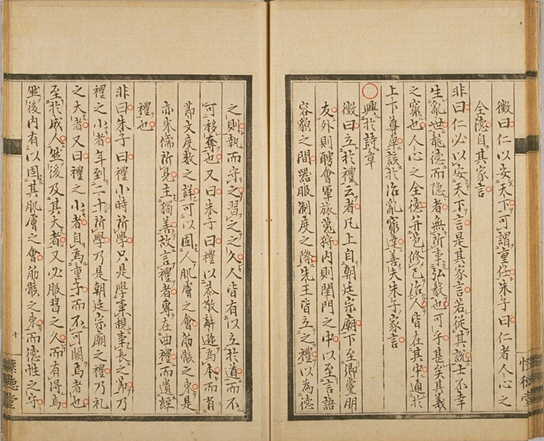 徵曰仁以安天下可謂重任朱子曰仁者人心之
全德自其家言
非曰仁必以安天下言是其家言若從其說士不幸
生亂世龍德而隱者無所事弘毅也可乎甚矣其義
之窾也人心之全德修己治人皆在其中通於
上下該於治亂窮達朱子家言
興於詩章
徵曰立於禮云者凡上自朝廷宗廟下至鄉黨朋
友外則聘會軍旅蒐狩內則閨門之中以至言語
容貌之間器服制度之際先王皆立之禮以為德
之則執而守之習之之久人皆有以立於道而不
可移奪也又曰朱子曰禮以恭敬辭遜為本而有
節文度數之詳可以固人肌膚之會筋骸之束是
亦宋儒所見主獨善故言禮者專在曲禮而遺經
禮也
非曰朱子曰禮小時所學只是學事親事長之節乃
禮之小者年到二十所學乃是朝廷宗廟之禮乃禮
之大者又曰禮之小者自為童子而不可闕焉者也
至於成人然後及其大者又必服習之久而有得焉
然後內有以固其肌膚之會筋骸之束而德性之守
十
懷德堂